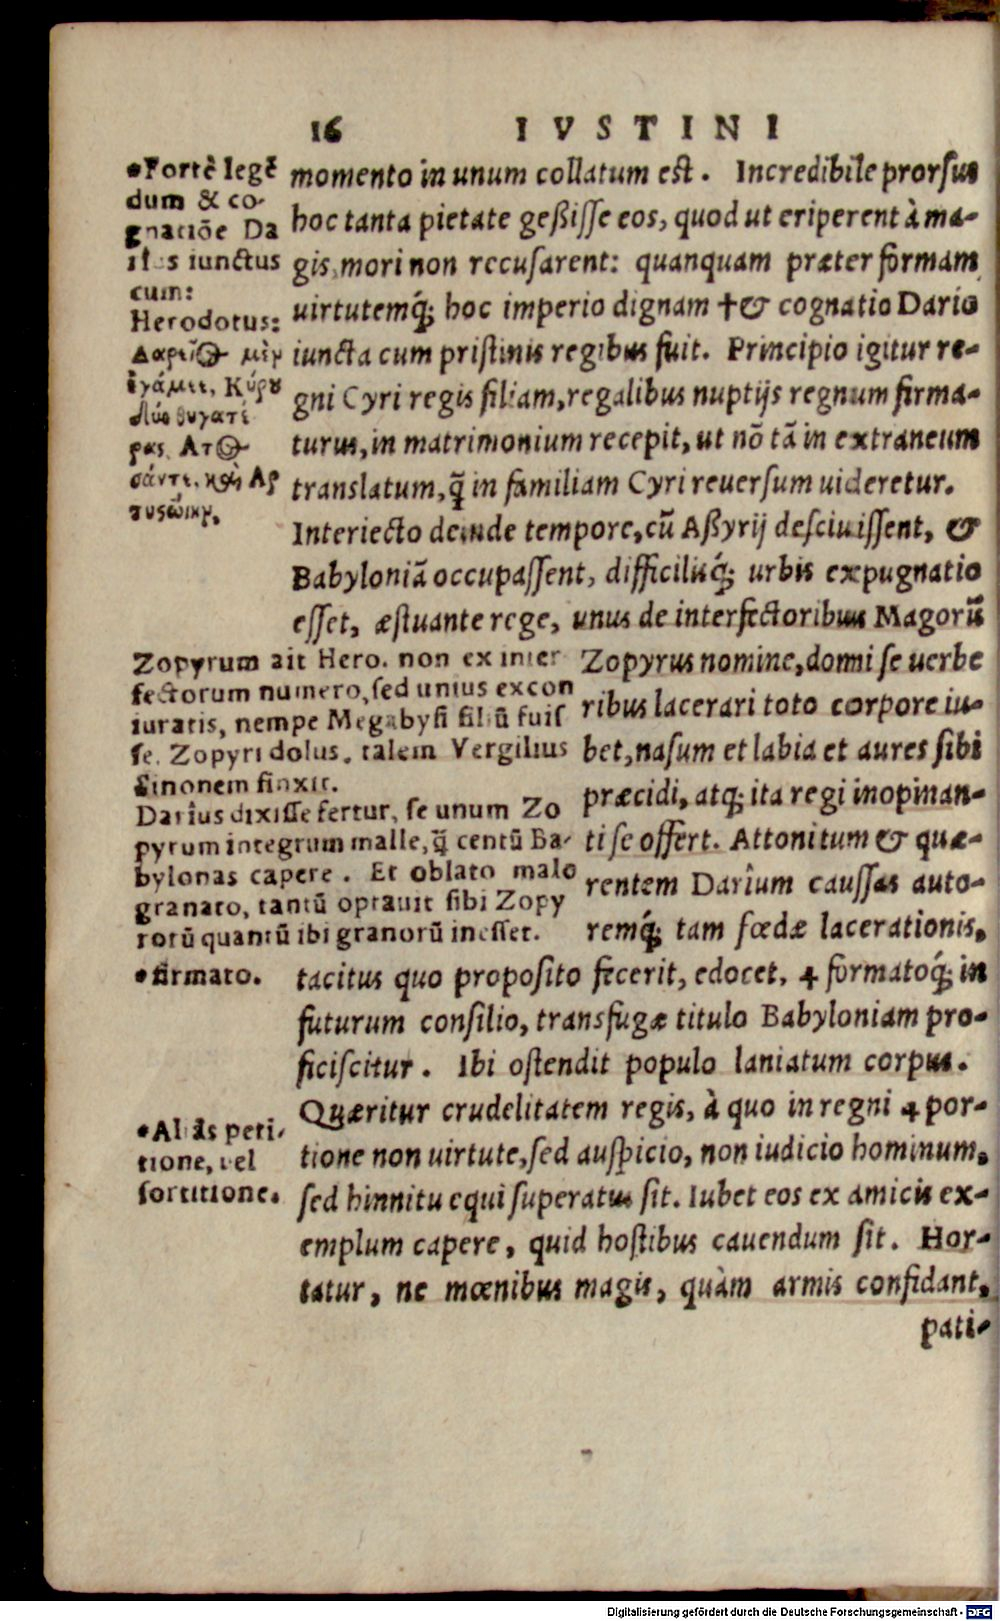 16 IVSTINI
momento in unum collatum est. Incredibile prorsus
hoc tanta pietate geßisse eos, quod ut eriperent à ma-
gis, mori non recusarent: quanquam præter formam
uirtutemq́; hoc imperio dignam † & cognatio Dario
iuncta cum pristinis regibus fuit. Principio igitur re-
gni Cyri regis filiam, regalibus nuptijs regnum firma-
turus, in matrimonium recepit, ut nõ tã in extraneum
translatum, q̃ in familiam Cyri reuersum uideretur.
Interiecto deinde tempore, cũ Aßyrij desciuissent, &
Babyloniã occupassent, difficilisq́; urbis expugnatio
esset, æstuante rege, unus de interfectoribus Magorũ
Zopyrus nomine, domi se uerbe
ribus lacerari toto corpore iu-
bet, nasum et labia et aures sibi
præcidi, atq; ita regi inopinan-
ti se offert. Attonitum & quæ-
rentem Darîum caussas auto-
remq́; tam fœdæ lacerationis,
tacitus quo proposito fecerit, edocet, ⁕ formatoq́; in
futurum consilio, transfugæ titulo Babyloniam pro-
ficiscitur. Ibi ostendit populo laniatum corpus.
Quæritur crudelitatem regis, à quo in regni ⁕ por-
tione non uirtute, sed auspicio, non iudicio hominum,
sed hinnitu equi superatus sit. Iubet eos ex amicis ex-
emplum capere, quid hostibus cauendum sit. Hor-
tatur, ne mœnibus magis, quàm armis confidant,
pati-
•Fortè legẽ
dum & co-
gnatiõe Da
iunctus
cum:
Herodotus:
μὲν
Κύρου
δύο θυγατέ
ρας, Ατ
σάντε, καὶ Αρ
Zopyrum ait Hero. non ex inter
fectorum numero, sed unius excon
iuratis, nempe Megabysi filiũ fuis
se. Zopyri dolus, talem Vergilius
Sinonem finxit.
Darîus dixisse fertur, se unum Zo
pyrum integrum malle, q̃ centũ Ba-
bylonas capere. Et oblato malo
granato, tantũ optauit sibi Zopy
rorũ quantũ ibi granorũ inesset.
•firmato.
•Aliâs peti-
tione, vel
sortitione.
Digitalisierung gefördert durch die Deutsche Forschungsgemeinschaft - DFG